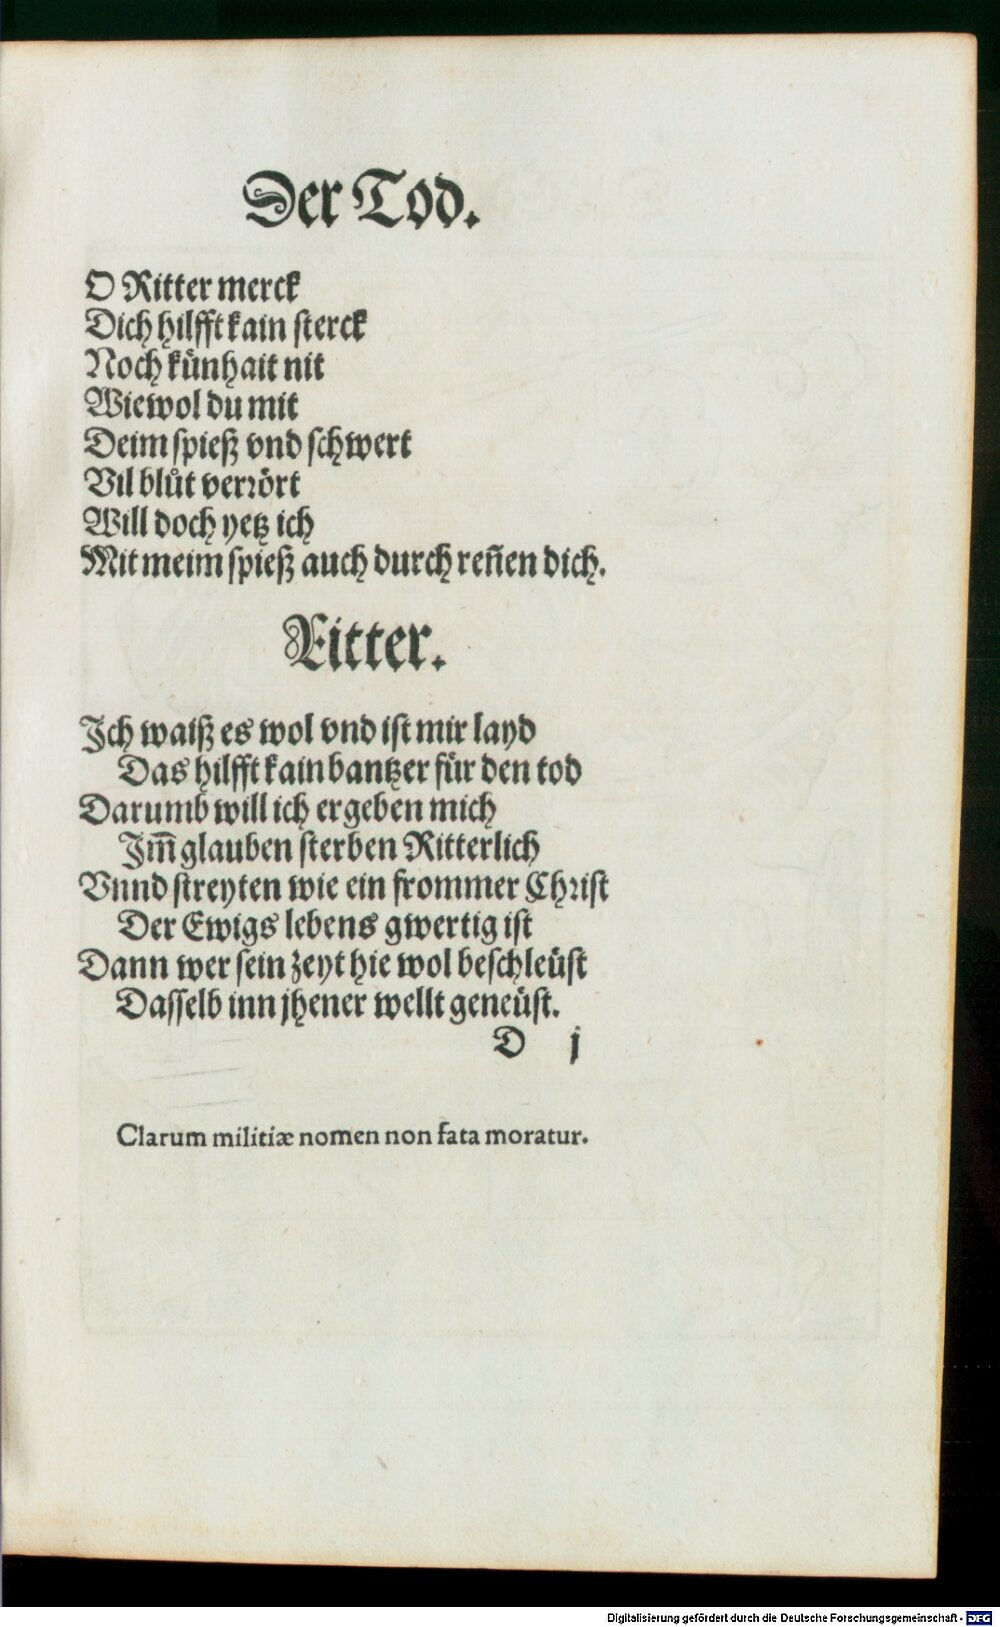 Der Tod.
O Ritter merck
Dich hilfft kain sterck
Noch künhait nit
Wiewol du mit
Deim spieß vnd schwert
Vil blůt verrört
Will doch yetz ich
Mit meim spieß auch durch reñen dich.
Ritter.
Ich waiß es wol vnd ist mir layd
Das hilfft kain bantzer für den tod
Darumb will ich ergeben mich
Im̃ glauben sterben Ritterlich
Vnnd streyten wie ein frommer Christ
Der Ewigs lebens gwertig ist
Dann wer sein zeyt hie wol beschleüst
Dasselb inn jhener wellt geneüst.
D j
Clarum militiæ nomen non fata moratur.
Digitalisierung gefördert durch die Deutsche Forschungsgemeinschaft - DFG